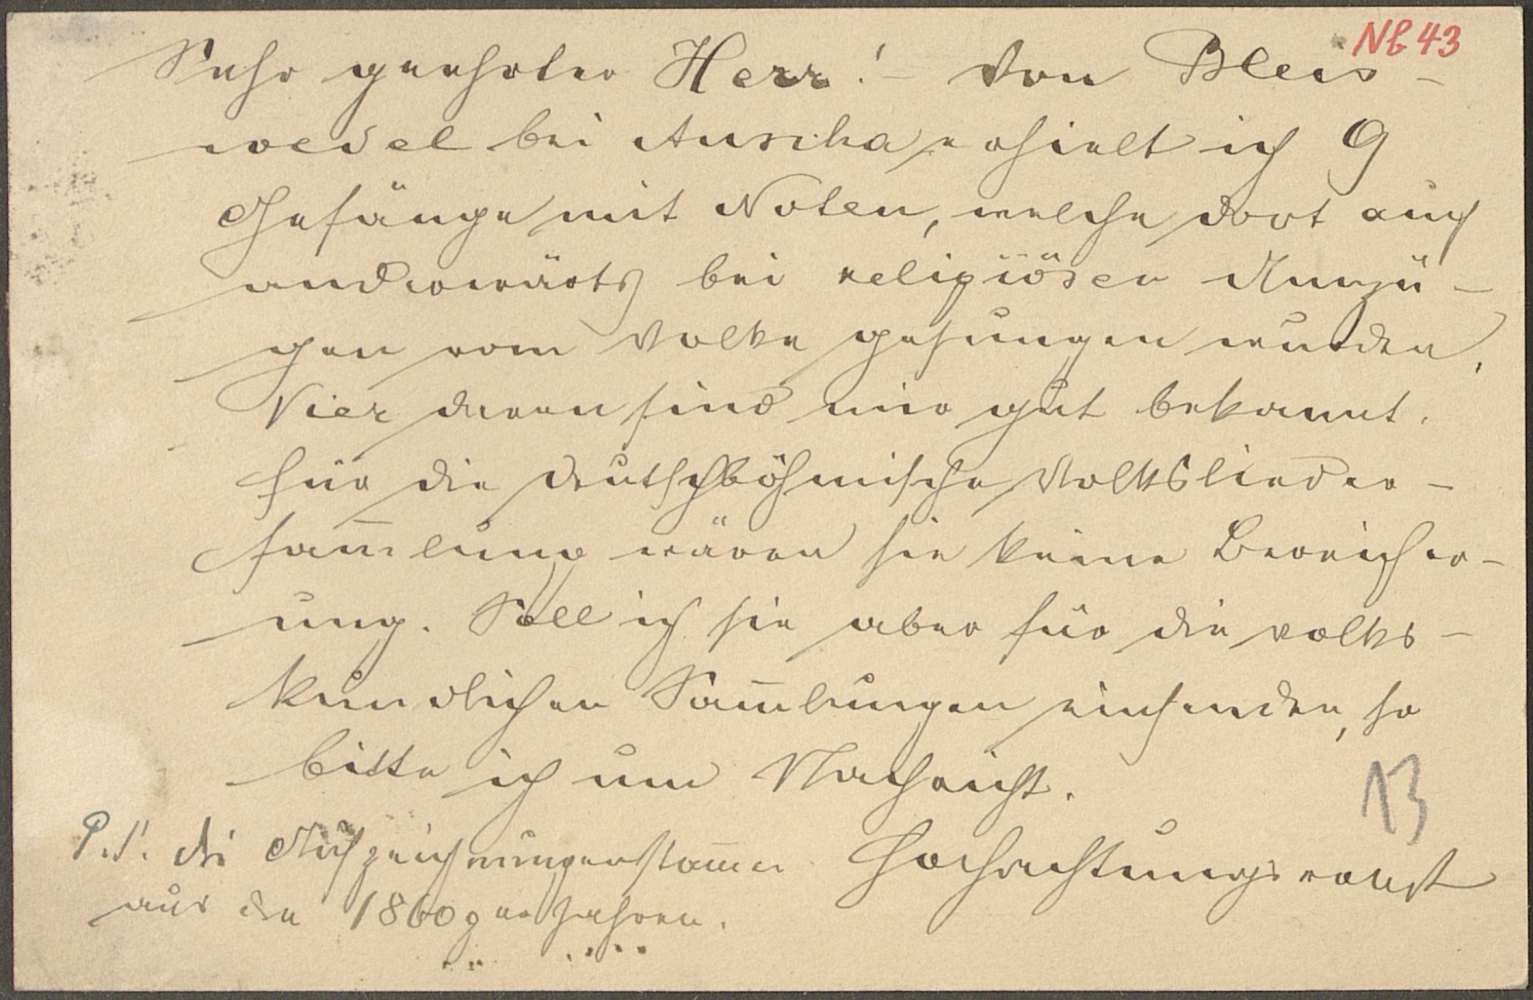 NB 43
Sehr geehrter Herr! – Von Bleis-
wedel bei Auscha erhielt ich 9
Gesänge mit Noten, welche dort auch
anderwärts bei religiösen Umzü-
gen vom Volke gesungen wurden.
Vier davon sind mir gut bekannt.
Für die deutschböhmische Volkslieder-
sam̅lung wären sie keine Bereicher-
ung. Soll ich sie aber für die volks-
kundlichen Sam̅lungen einsenden, so
bitte ich um Nachricht.
13
P.S. Die Aufzeichnungen stam̅en
aus den 1860ger Jahren.
Hochachtungsvollst